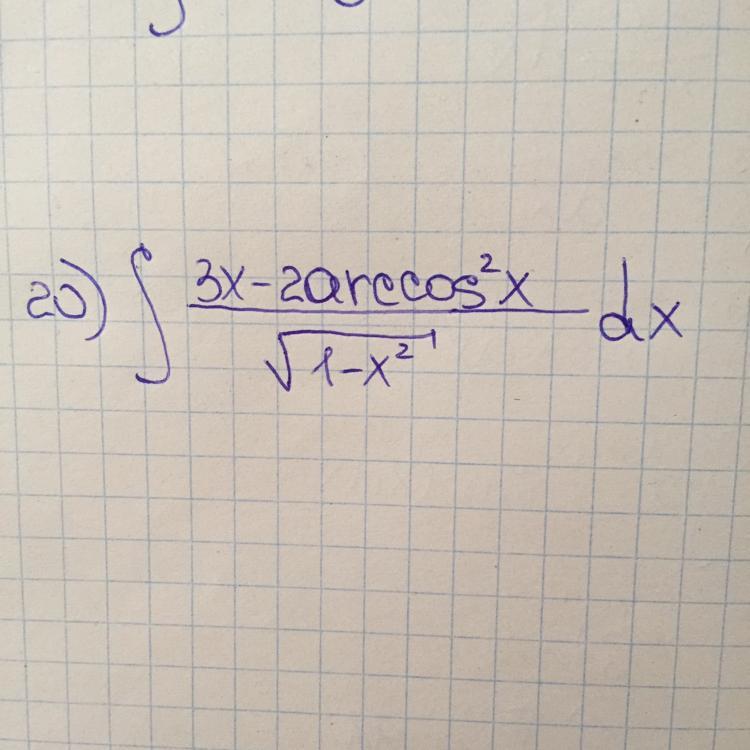 20) ∫ 3x-2arccos²x / √1-x² dx